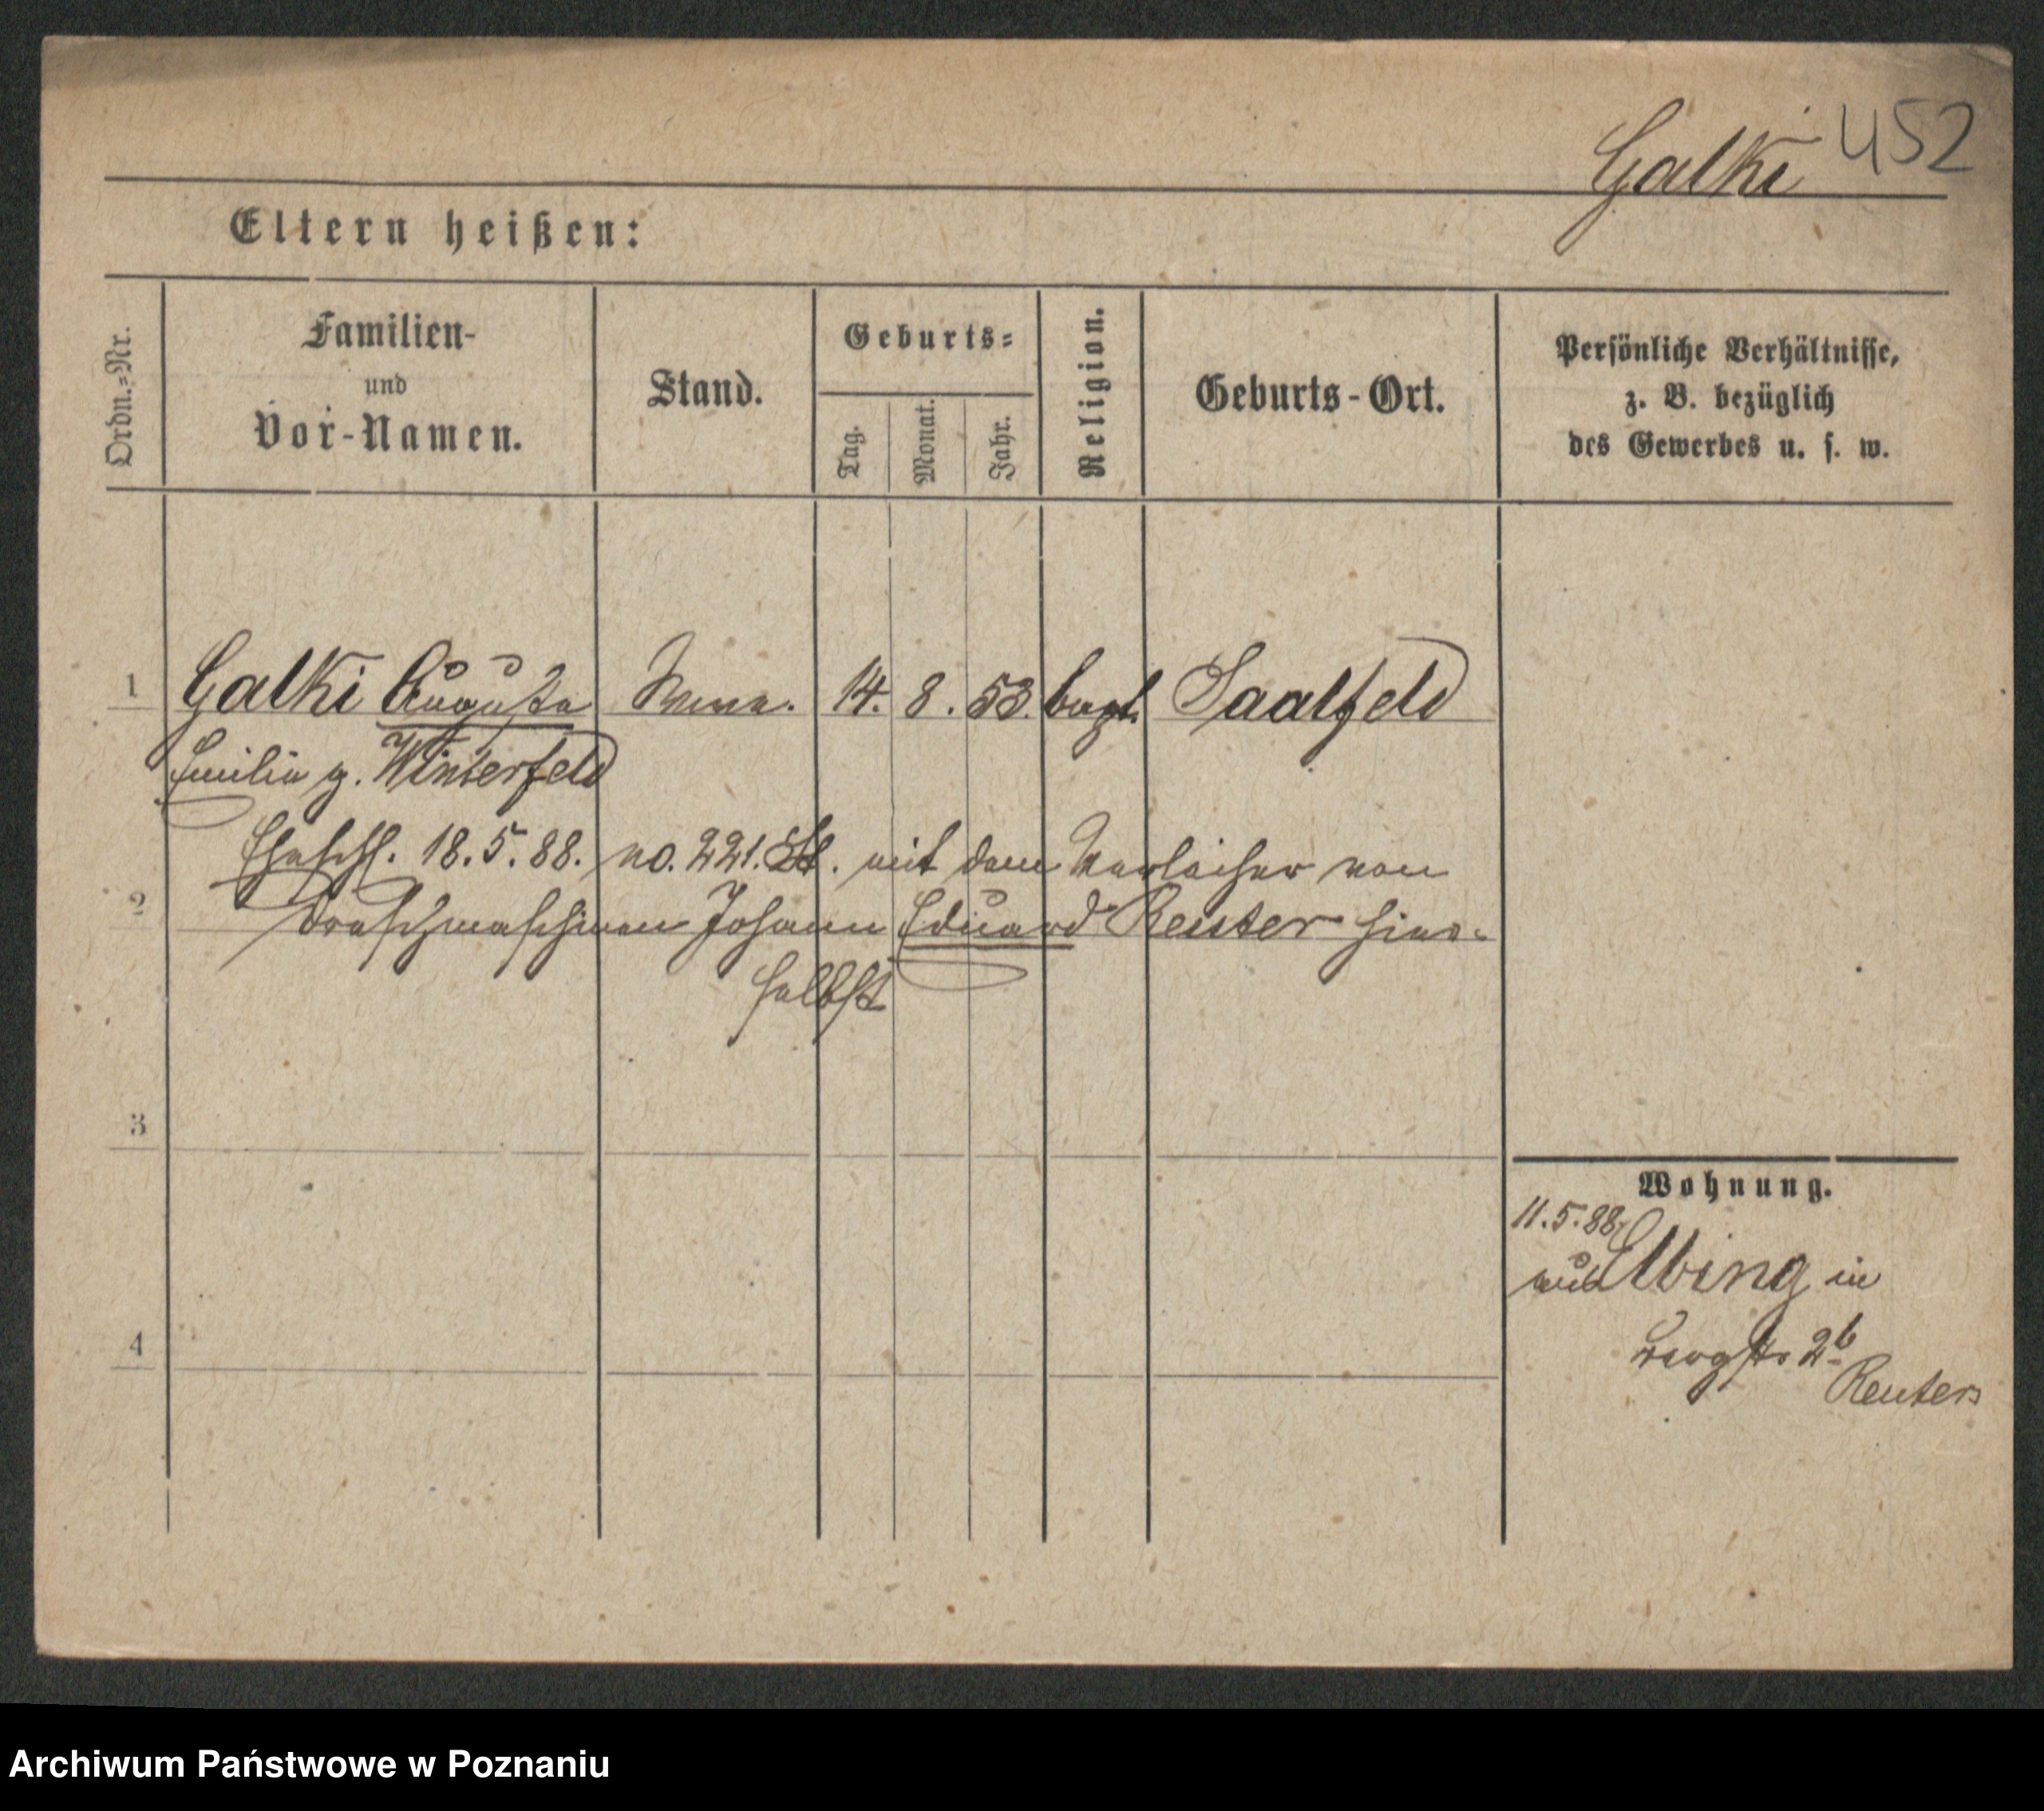 Galki 452
Eltern heißen:
Ordn.=Nr.
Familien-
und
Vor-Namen.
Stand.
Geburts=
Tag.
Monat.
Jahr.
Religion.
Geburts-Ort.
Persönliche Verhältnisse,
z. B. bezüglich
des Gewerbes u. s. w.
1 Galki Auguste 14. 8. 53. Saalfeld
Emilie g. Winterfeld
Eheschl. 18.5.88. no. 221. St. mit dem Verleiher von
2 Dreschmaschinen Johann Eduard Reuter hier-
selbst
3
Wohnung.
11.5.88.
aus Elbing in
Bergstr 2b
4
Reuters
Archiwum Państwowe w Poznaniu